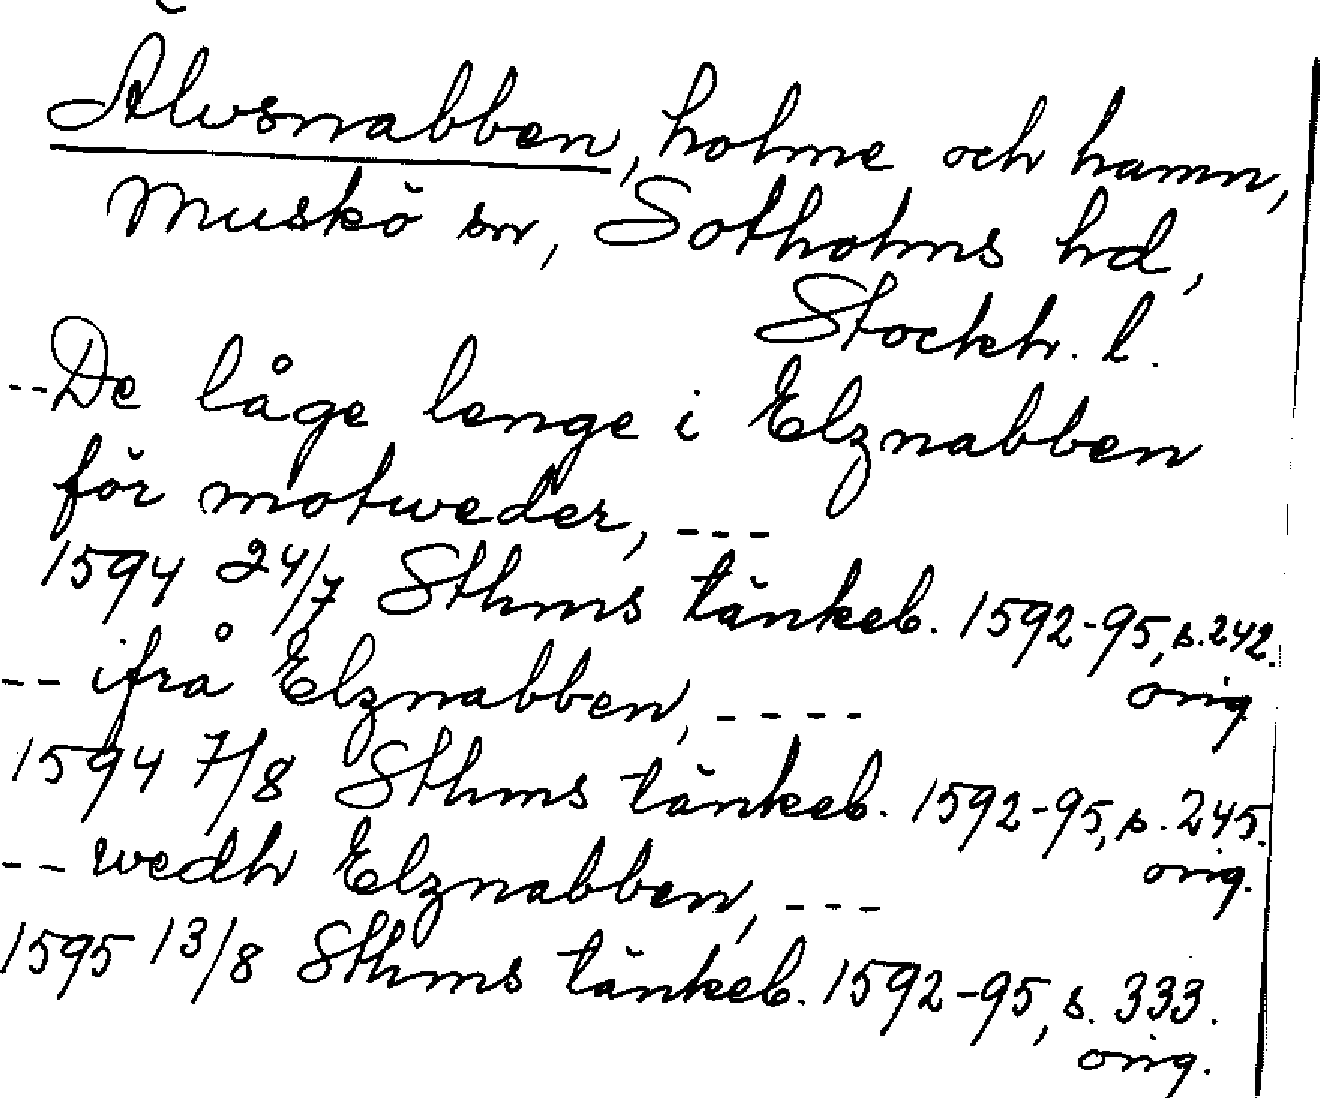 Älvsnabben, holme och hamn,
Muskö sn, Sotholms hd,
Stockh. l.
-- De låge lenge i Elznabben
för motweder, ---
1594 24/7 Sthms tänkeb. 1592-95, s. 242.
orig
-- ifrå Elznabben, ----
1594 7/8 Sthms tänkeb. 1592-95, s. 245.
orig.
-- wedh Elznabben, ---
1595 13/8 Sthms tänkeb. 1592-95, s. 333.
orig.